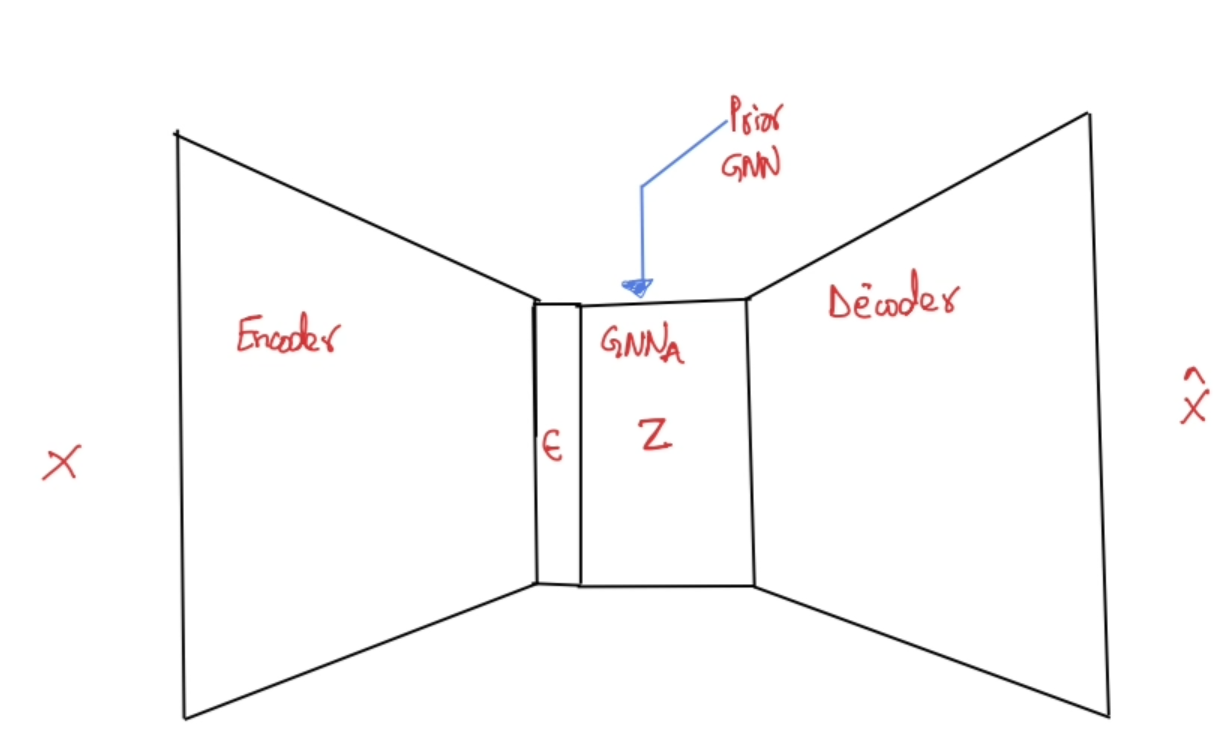 Prior
GNN
Encoder
GNN_A
Decoder
X
ϵ
Z
X̂